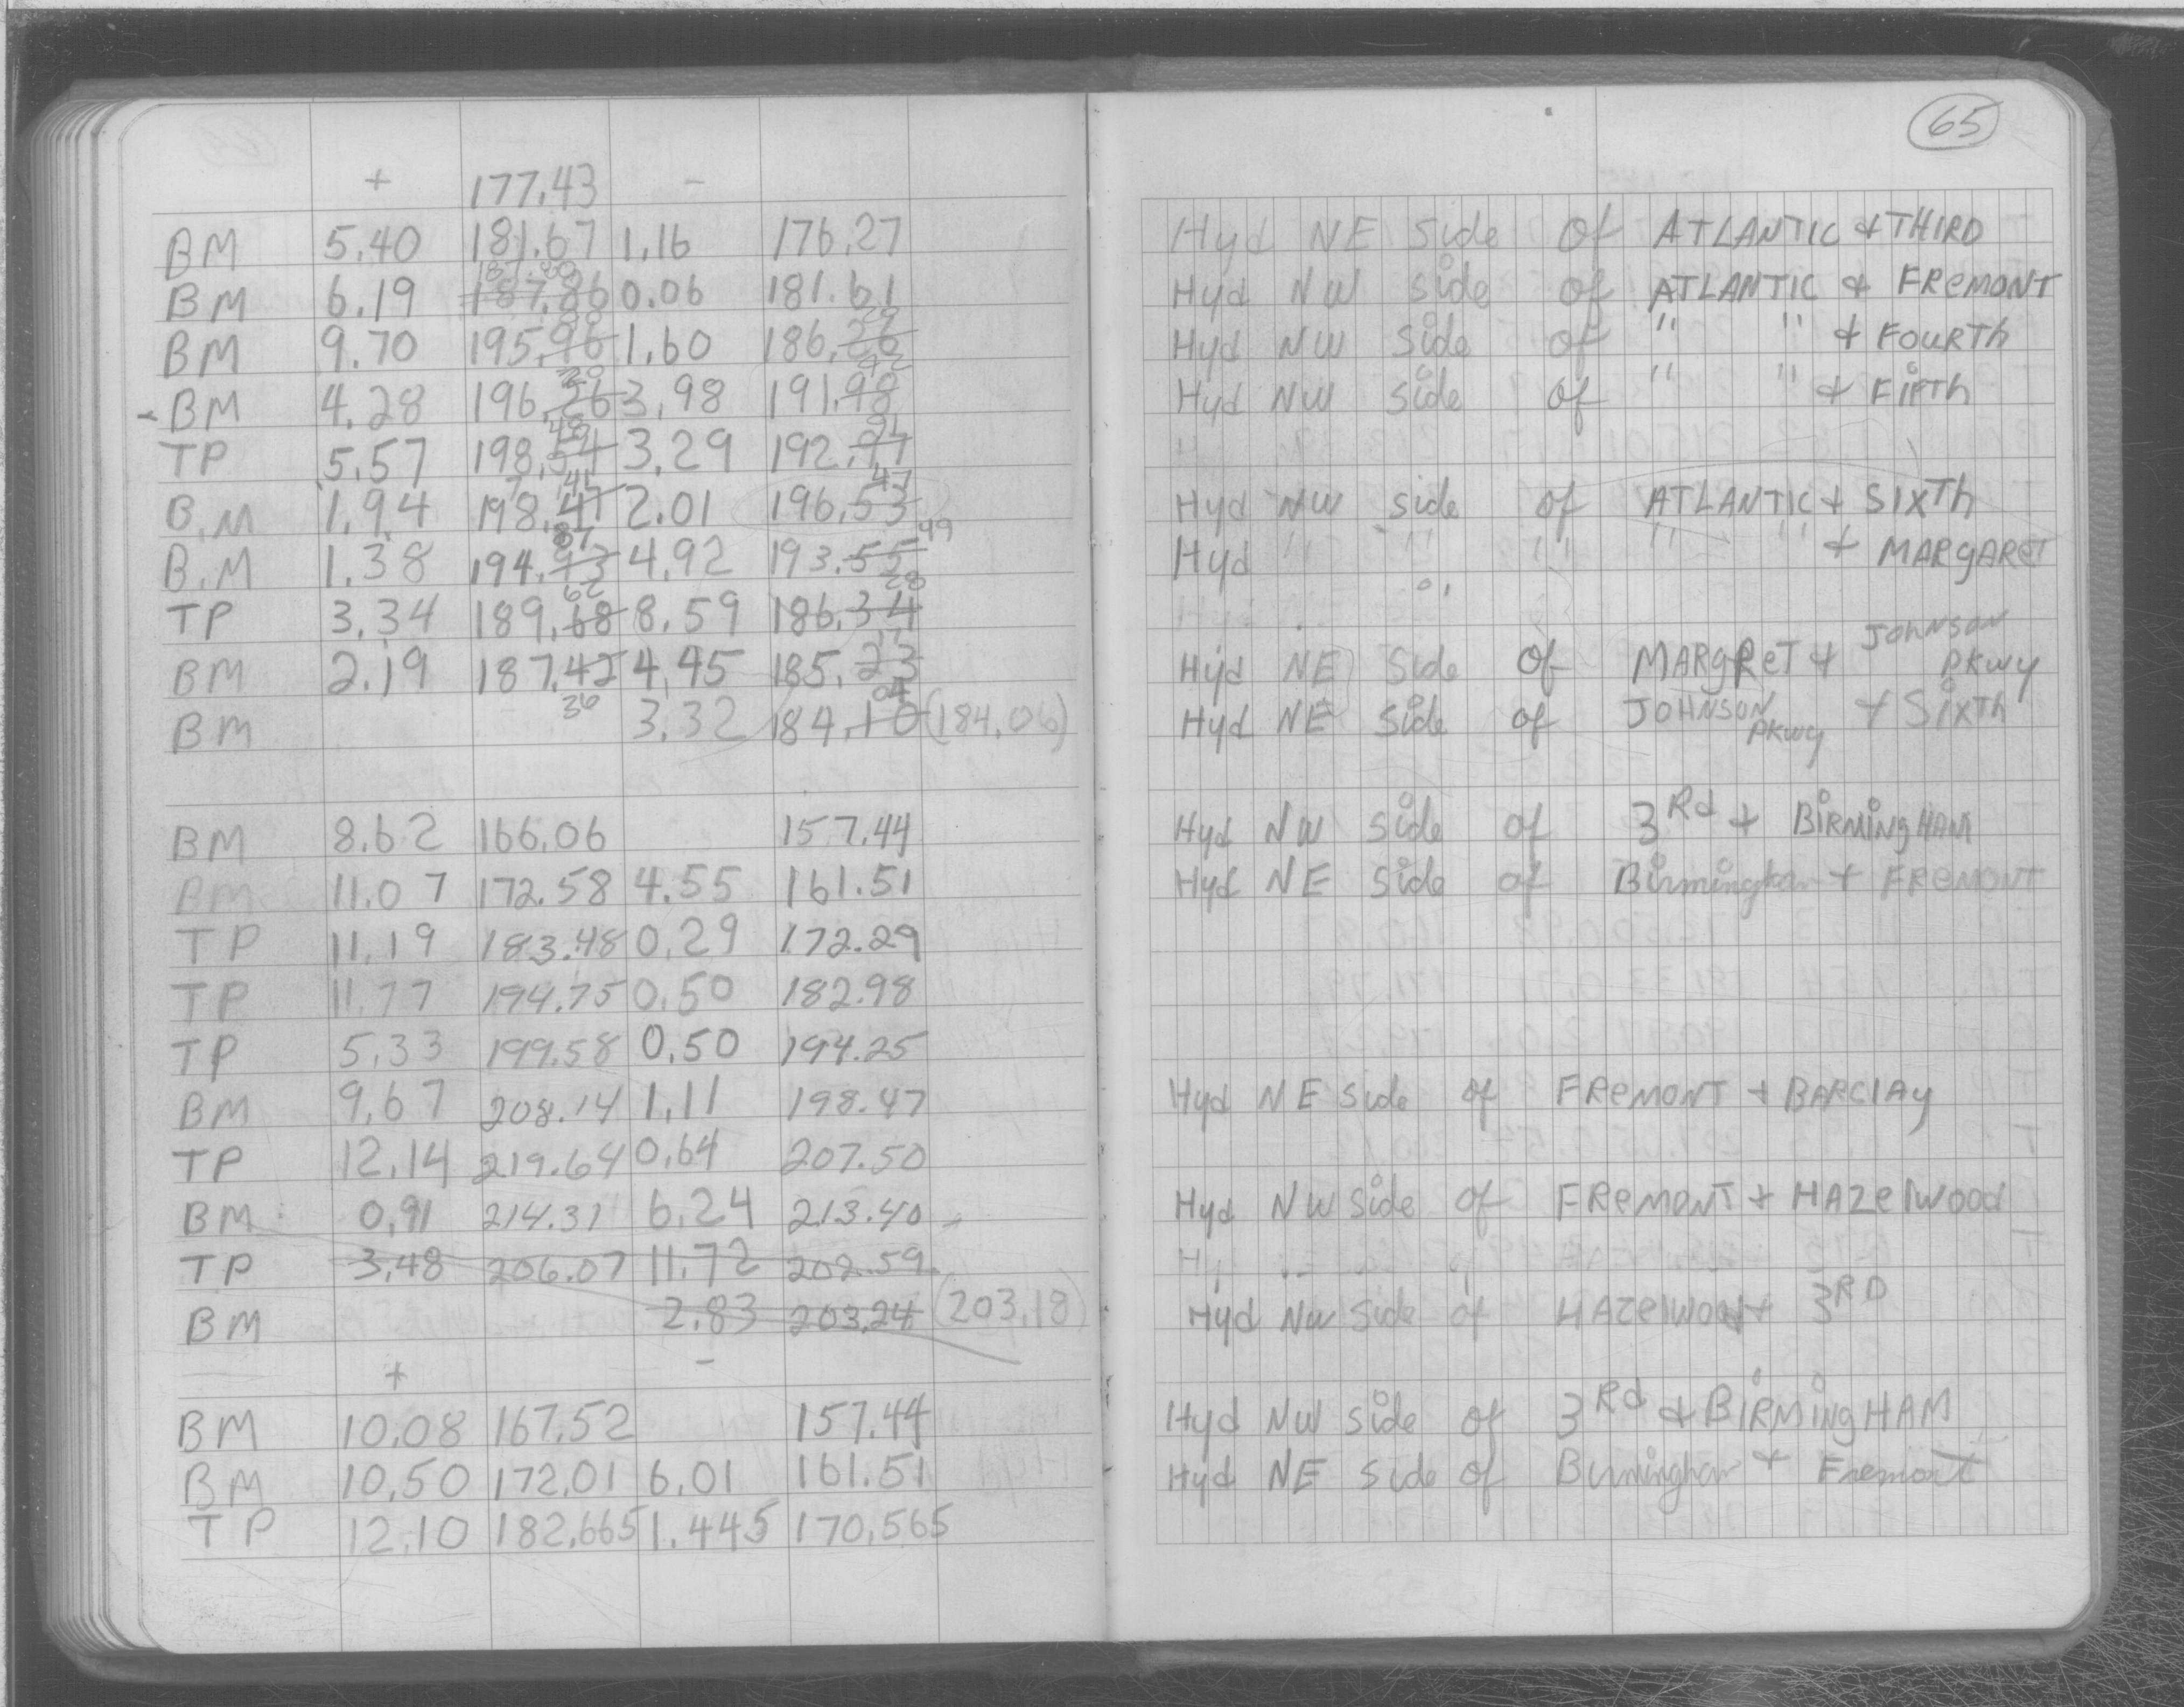 65
+ 177.43 -
BM 5.40 181.67 1.16 176.27 Hyd NE Side of ATLANTIC & THIRD
187.80
BM 6.19 187.86 0.06 181.61 Hyd NW side of ATLANTIC & FREMONT
90 20
BM 9.70 195.96 1.60 186.26 Hyd NW side of " " & FOURTh
20 92
- BM 4.28 196.26 3.98 191.98 Hyd NW side of " " & FifTh
48 91
TP 5.57 198.54 3.29 192.97
41 47
B.M 1.94 198.47 2.01 196.53 Hyd NW side of ATLANTIC & SIXTh
87 49
B.M 1.38 194.93 4.92 193.55 Hyd " " " " " & MARGARET
62 28
TP 3.34 189.68 8.59 186.34
17
BM 2.19 187.42 4.45 185.23 Hyd NE Side of MARGRET & JOHNSON PKWY
36 04
BM 3.32 184.10 (184.06) Hyd NE side of JOHNSON PKWY & SixTh
BM 8.62 166.06 157.44 Hyd NW side of 3Rd & BiRMiNgHAM
BM 11.07 172.58 4.55 161.51 Hyd NE side of Birmingham & FREMONT
TP 11.19 183.48 0.29 172.29
TP 11.77 194.75 0.50 182.98
TP 5.33 199.58 0.50 194.25
BM 9.67 208.14 1.11 198.47 Hyd NE side of FREMONT & BARClAy
TP 12.14 219.64 0.64 207.50
BM 0.91 214.31 6.24 213.40 Hyd NW side of FREMONT & HAZelwood
TP 3.48 206.07 11.72 202.59
BM 2.83 203.24 (203.18) Hyd NW side of HAZelwood & 3RD
+ -
BM 10.08 167.52 157.44 Hyd NW side of 3Rd & BiRMiNgHAM
BM 10.50 172.01 6.01 161.51 Hyd NE side of Birmingham & Fremont
TP 12.10 182.665 1.445 170.565